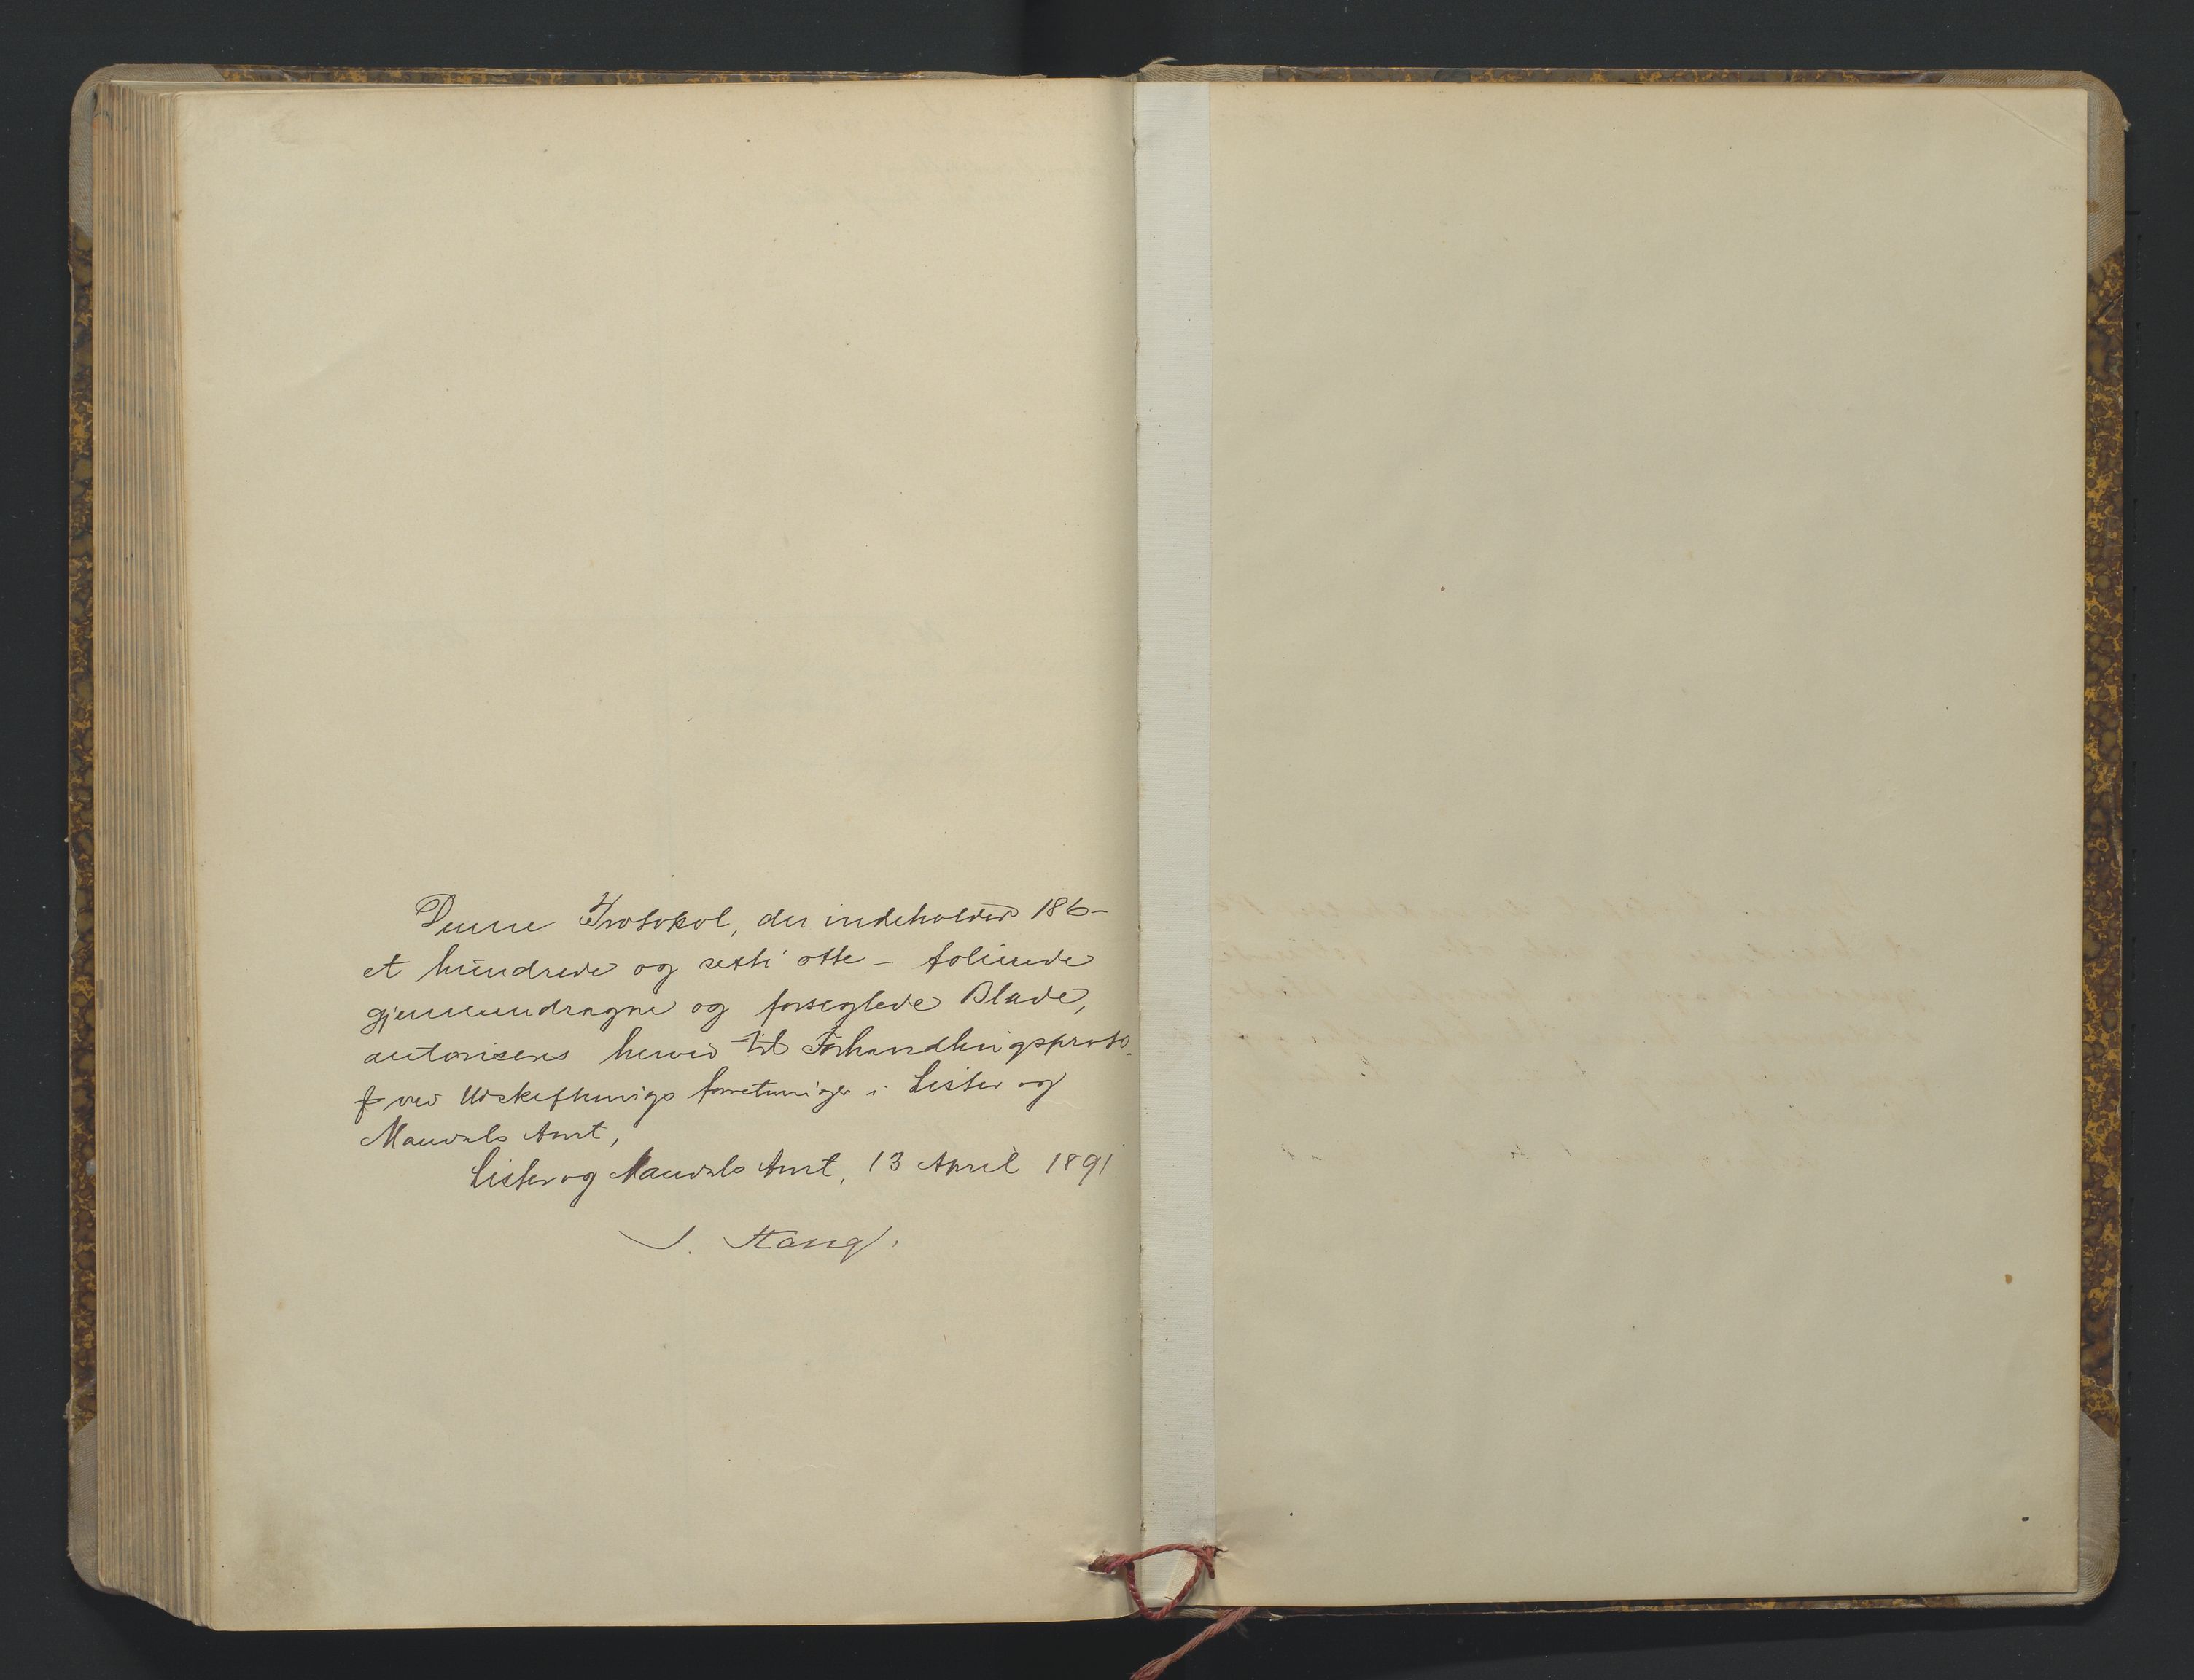 Denne Protokol, der indeholder 186 –
et hundrede og sexti otte – folierede
gjennemdragne og forseglede Blade,
autoriseres herved til Forhandlingsproto-
ved Udskiftnings forretninger i Lister og
Mandals Amt,
Lister og Mandals Amt, 13 April 1891
J. Stang.